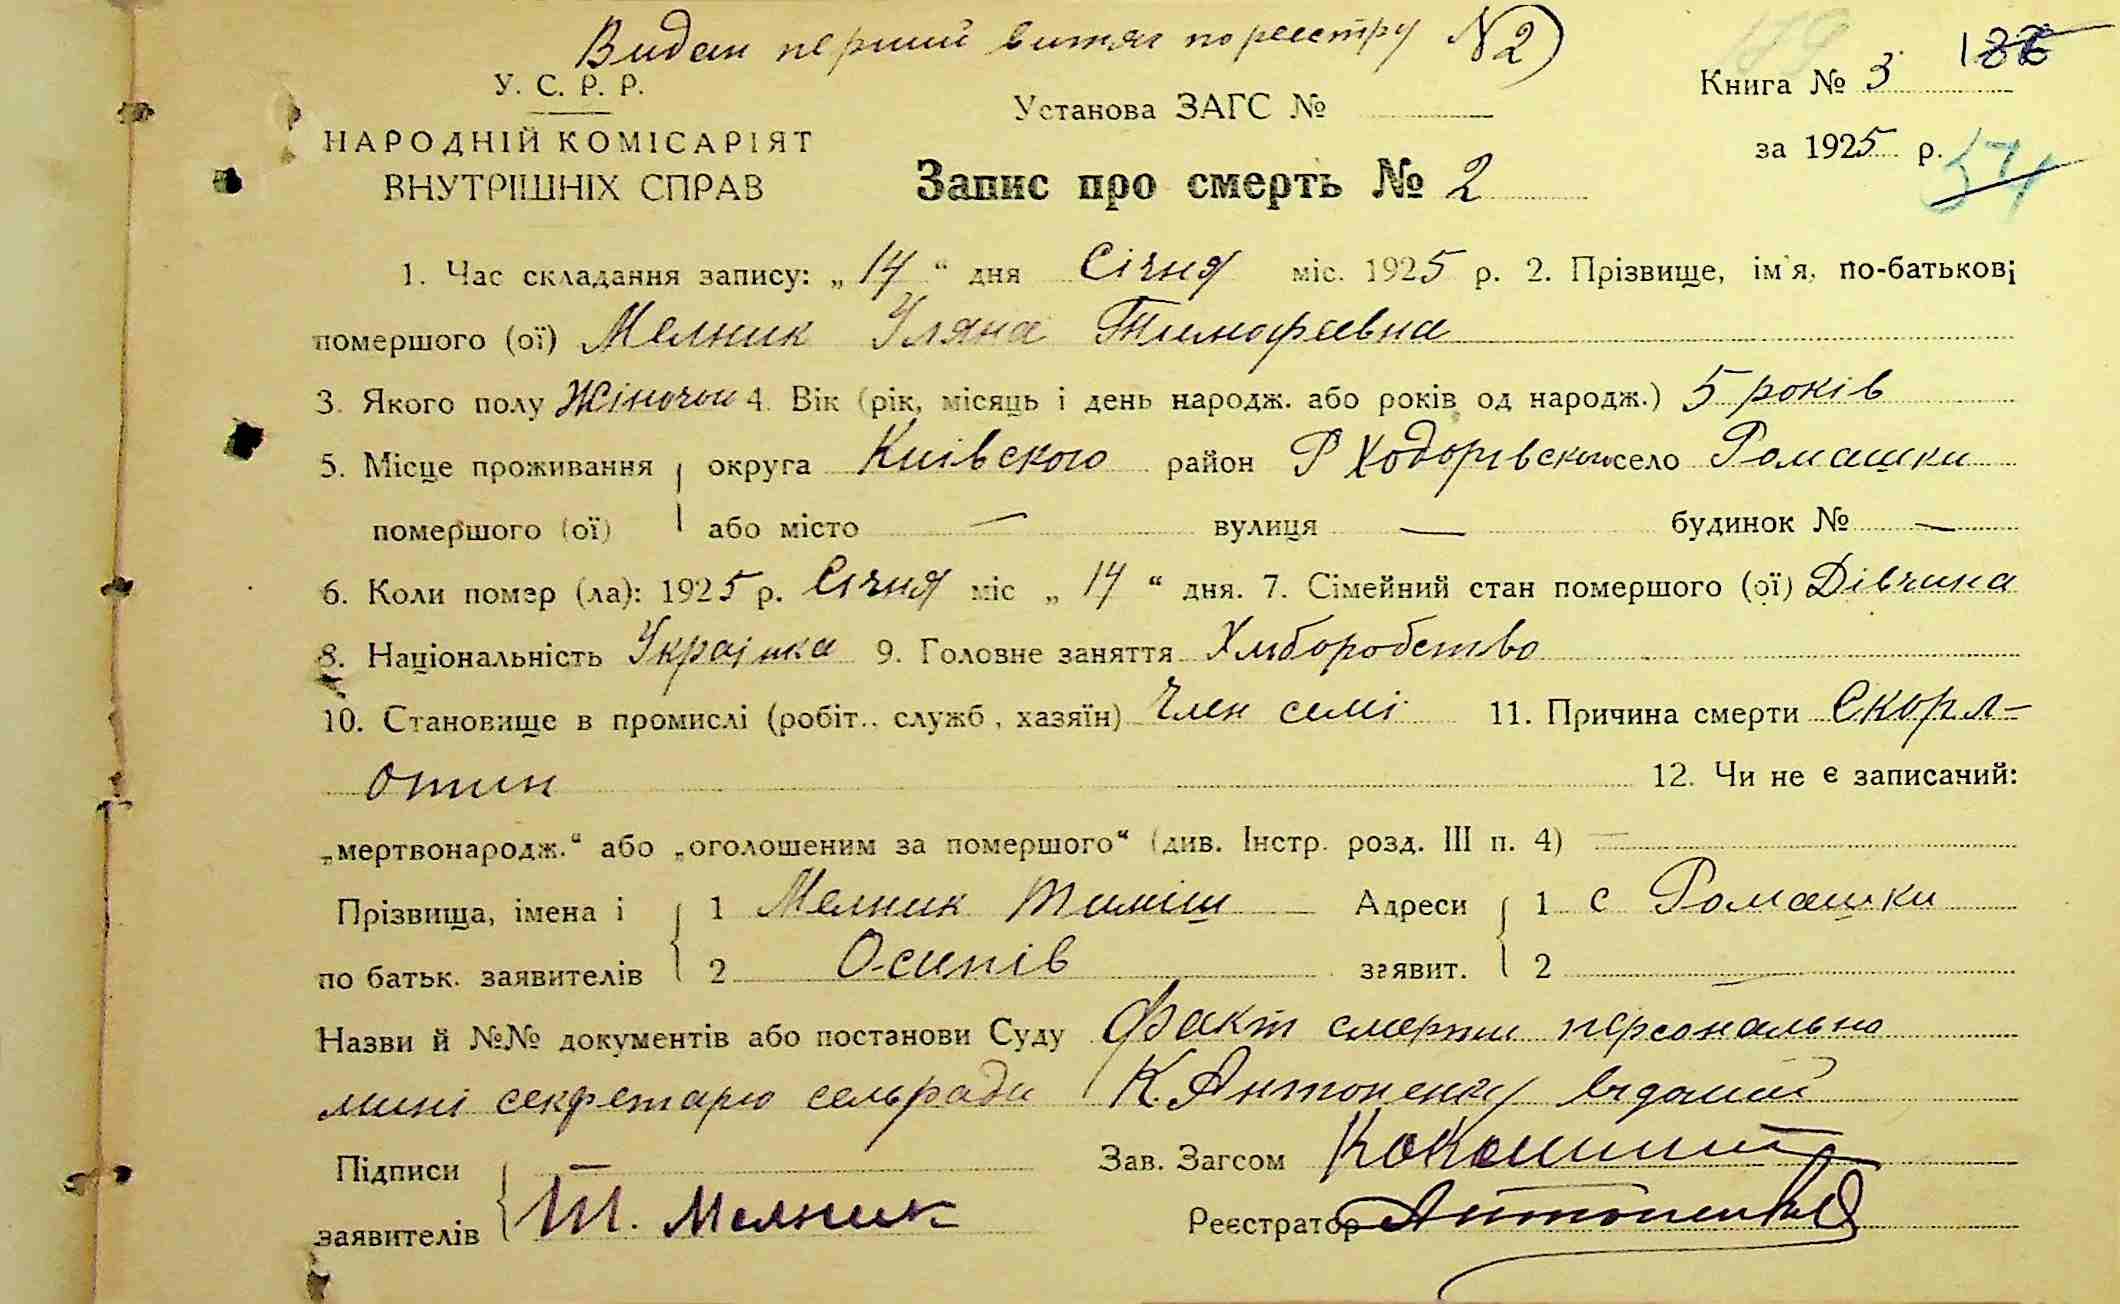 Видан перший витяг по реестру № 2
У. С. Р. Р.
НАРОДНІЙ КОМІСАРІЯТ
ВНУТРІШНІХ СПРАВ
Установа ЗАГС №
Запис про смерть № 2
Книга № 3
за 1925 р.
1. Час складання запису: „14“ дня Січня міс. 1925 р. 2. Прізвище, ім'я, по-батькові
помершого (ої) Мелник Уляна Тимофеевна
3. Якого полу Жіночои 4. Вік (рік, місяць і день народж. або років од народж.) 5 років
5. Місце проживання округа Київского район Р Ходорівского село Ромашки
помершого (ої) або місто — вулиця — будинок № —
6. Коли помер (ла): 1925 р. Січня міс „14“ дня. 7. Сімейний стан помершого (ої) Дівчина
8. Національність Українка 9. Головне заняття Хліборобство
10. Становище в промислі (робіт., служб, хазяїн) Член семі 11. Причина смерти Скорл-
отин 12. Чи не є записаний:
„мертвонародж.“ або „оголошеним за помершого“ (див. Інстр. розд. III п. 4) —
Прізвища, імена і 1 Мелник Тиміш Адреси 1 с Ромашки
по батьк. заявителів 2 Осипів заявит. 2 —
Назви й №№ документів або постанови Суду Факт смерти персонально
мині секретарю сельради К. Антоненку відомий
Підписи — Зав. Загсом
заявителів Т. Мелник Реєстратор Антоненко